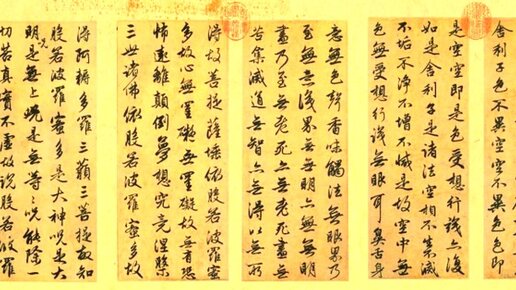 舍利子色不異空空不異色色即
是空空即是色受想行識亦復
如是舍利子是諸法空相不生不滅
不垢不淨不增不減是故空中無
色無受想行識無眼耳鼻舌身
意無色聲香味觸法無眼界乃
至無無識界無無明亦無無明
盡乃至無老死亦無老死盡無
苦集滅道無智亦無得以無所
得故菩提薩埵依般若波羅蜜
多故心無罣礙無罣礙故無有恐
怖遠離顛倒夢想究竟涅槃
三世諸佛依般若波羅蜜多故
得阿耨多羅三藐三菩提故知
般若波羅蜜多是大神呪是大
明呪是無上呪是無等等呪能除一
切苦真實不虛故說般若波羅